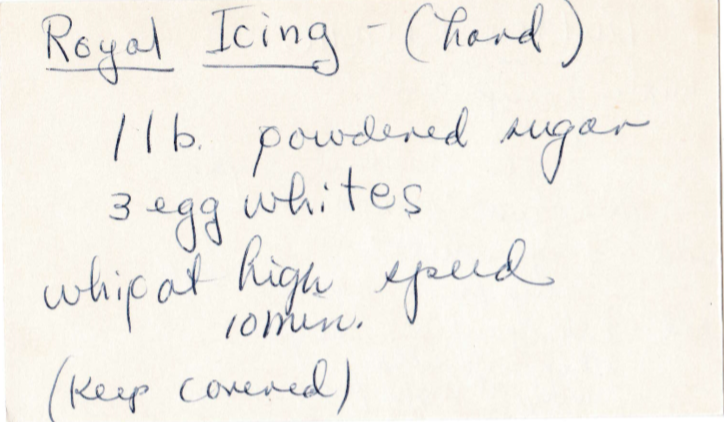 Royal Icing - (hard)
1 lb. powdered sugar
3 egg whites
whip at high speed
10 min.
(Keep covered)